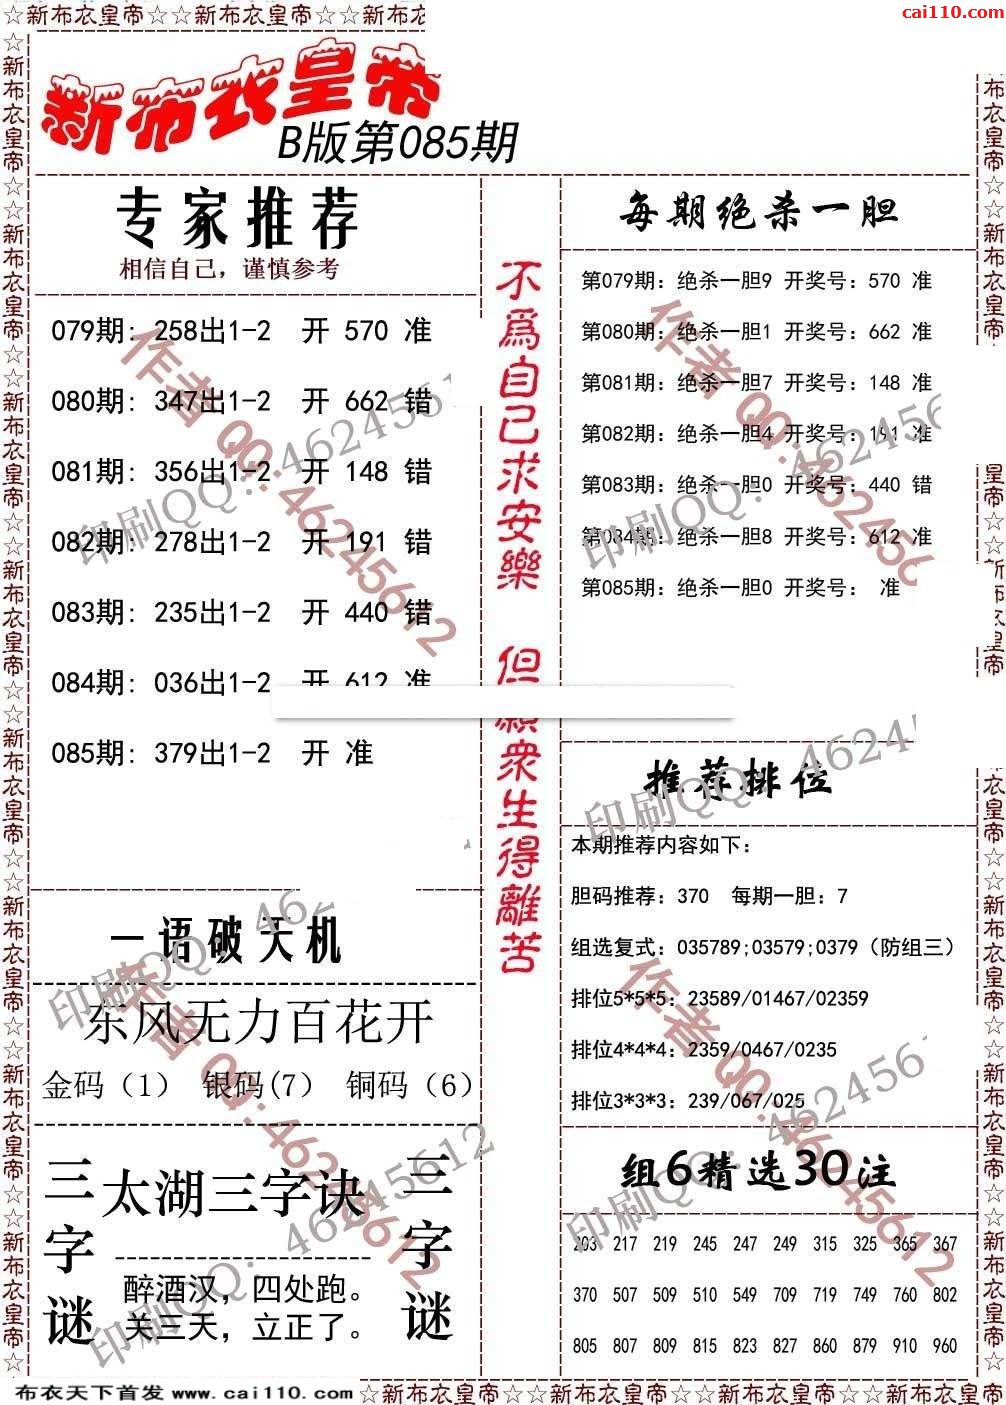 ☆新布衣皇帝☆☆新布衣皇帝☆☆新布衣
cai110.com
新布衣皇帝
B版第085期
专家推荐
相信自己，谨慎参考
079期: 258出1-2 开 570 准
080期: 347出1-2 开 662 错
081期: 356出1-2 开 148 错
082期: 278出1-2 开 191 错
083期: 235出1-2 开 440 错
084期: 036出1-2 开 612 准
085期: 379出1-2 开 准
一语破天机
东风无力百花开
金码（1） 银码(7） 铜码（6）
三字谜
太湖三字诀
醉酒汉，四处跑。
关三天，立正了。
三字谜
不爲自己求安樂 但願衆生得離苦
每期绝杀一胆
第079期: 绝杀一胆9 开奖号: 570 准
第080期: 绝杀一胆1 开奖号: 662 准
第081期: 绝杀一胆7 开奖号: 148 准
第082期: 绝杀一胆4 开奖号: 191 准
第083期: 绝杀一胆0 开奖号: 440 错
第084期: 绝杀一胆8 开奖号: 612 准
第085期: 绝杀一胆0 开奖号: 准
推荐排位
本期推荐内容如下:
胆码推荐: 370 每期一胆: 7
组选复式: 035789;03579;0379（防组三）
排位5*5*5: 23589/01467/02359
排位4*4*4: 2359/0467/0235
排位3*3*3: 239/067/025
组6精选30注
203 217 219 245 247 249 315 325 365 367
370 507 509 510 549 709 719 749 760 802
805 807 809 815 823 827 860 879 910 960
作者 QQ:46245612
印刷QQ: 46245612
布衣天下首发 www.cai110.com
☆新布衣皇帝☆☆新布衣皇帝☆☆新布衣皇帝☆☆新布衣皇帝☆